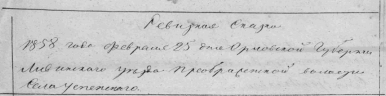 Ревизская Сказка
1858 года Февраля 25 дня Орловской Губернии
Ливенского уезда Преображенской волости
Села Успенского